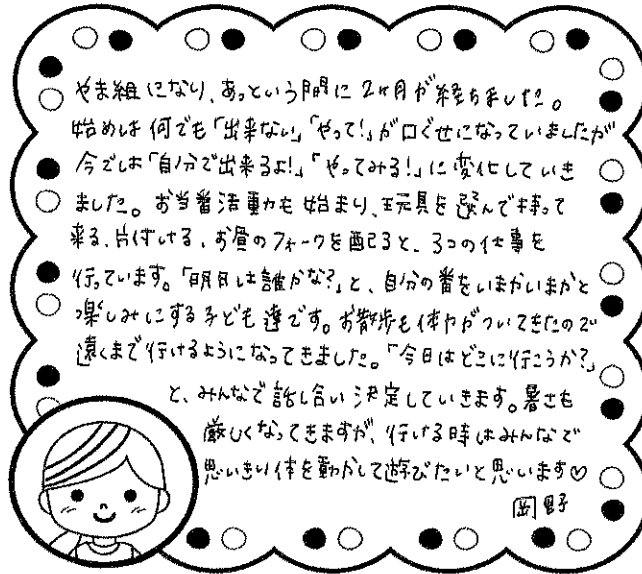 やま組になり、あっという間に2ヶ月が経ちました。
始めは何でも「出来ない」「やって!」が口ぐせになっていましたが
今では「自分で出来るよ!」「やってみる!」に変化していき
ました。お当番活動も始まり、玩具を選んで持って
来る、片付ける、お昼のフォークを配ると、3つの仕事を
行っています。「明日は誰かな?」と、自分の番をいまかいまかと
楽しみにする子ども達です。お散歩も体力がついてきたので
遠くまで行けるようになってきました。「今日はどこに行こうか?」
と、みんなで話し合い決定していきます。暑さも
厳しくなってきますが、行ける時はみんなで
思いきり体を動かして遊びたいと思います♡